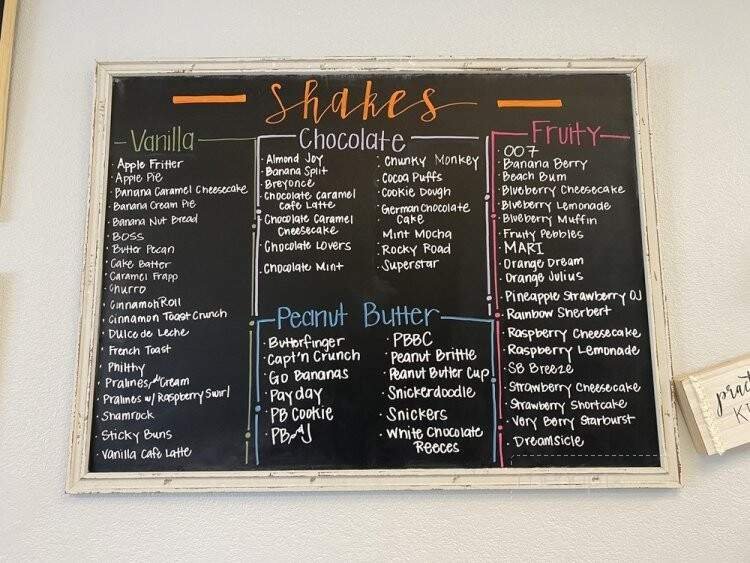 Shakes
Vanilla
· Apple Fritter
· Apple Pie
· Banana Caramel Cheesecake
· Banana Cream Pie
· Banana Nut Bread
· BOSS
· Butter Pecan
· Cake Batter
· Caramel Frapp
· Churro
· Cinnamon Roll
· Cinnamon Toast Crunch
· Dulce de Leche
· French Toast
· Philthy
· Pralines n' Cream
· Pralines w/ Raspberry Swirl
· Shamrock
· Sticky Buns
· Vanilla Cafe Latte
Chocolate
· Almond Joy
· Banana Split
· Breyonce
· Chocolate Caramel
Cafe Latte
· Chocolate Caramel
Cheesecake
· Chocolate Lovers
· Chocolate Mint
· Chunky Monkey
· Cocoa Puffs
· Cookie Dough
· German Chocolate
Cake
· Mint Mocha
· Rocky Road
· Superstar
Peanut Butter
· Butterfinger
· Capt'n Crunch
· Go Bananas
· Payday
· PB Cookie
· PB n' J
· PBBC
· Peanut Brittle
· Peanut Butter Cup
· Snickerdoodle
· Snickers
· White Chocolate
Reeces
Fruity
· 007
· Banana Berry
· Beach Bum
· Blueberry Cheesecake
· Blueberry Lemonade
· Blueberry Muffin
· Fruity Pebbles
· MARI
· Orange Dream
· Orange Julius
· Pineapple Strawberry OJ
· Rainbow Sherbert
· Raspberry Cheesecake
· Raspberry Lemonade
· SB Breeze
· Strawberry Cheesecake
· Strawberry Shortcake
· Very Berry Starburst
· Dreamsicle